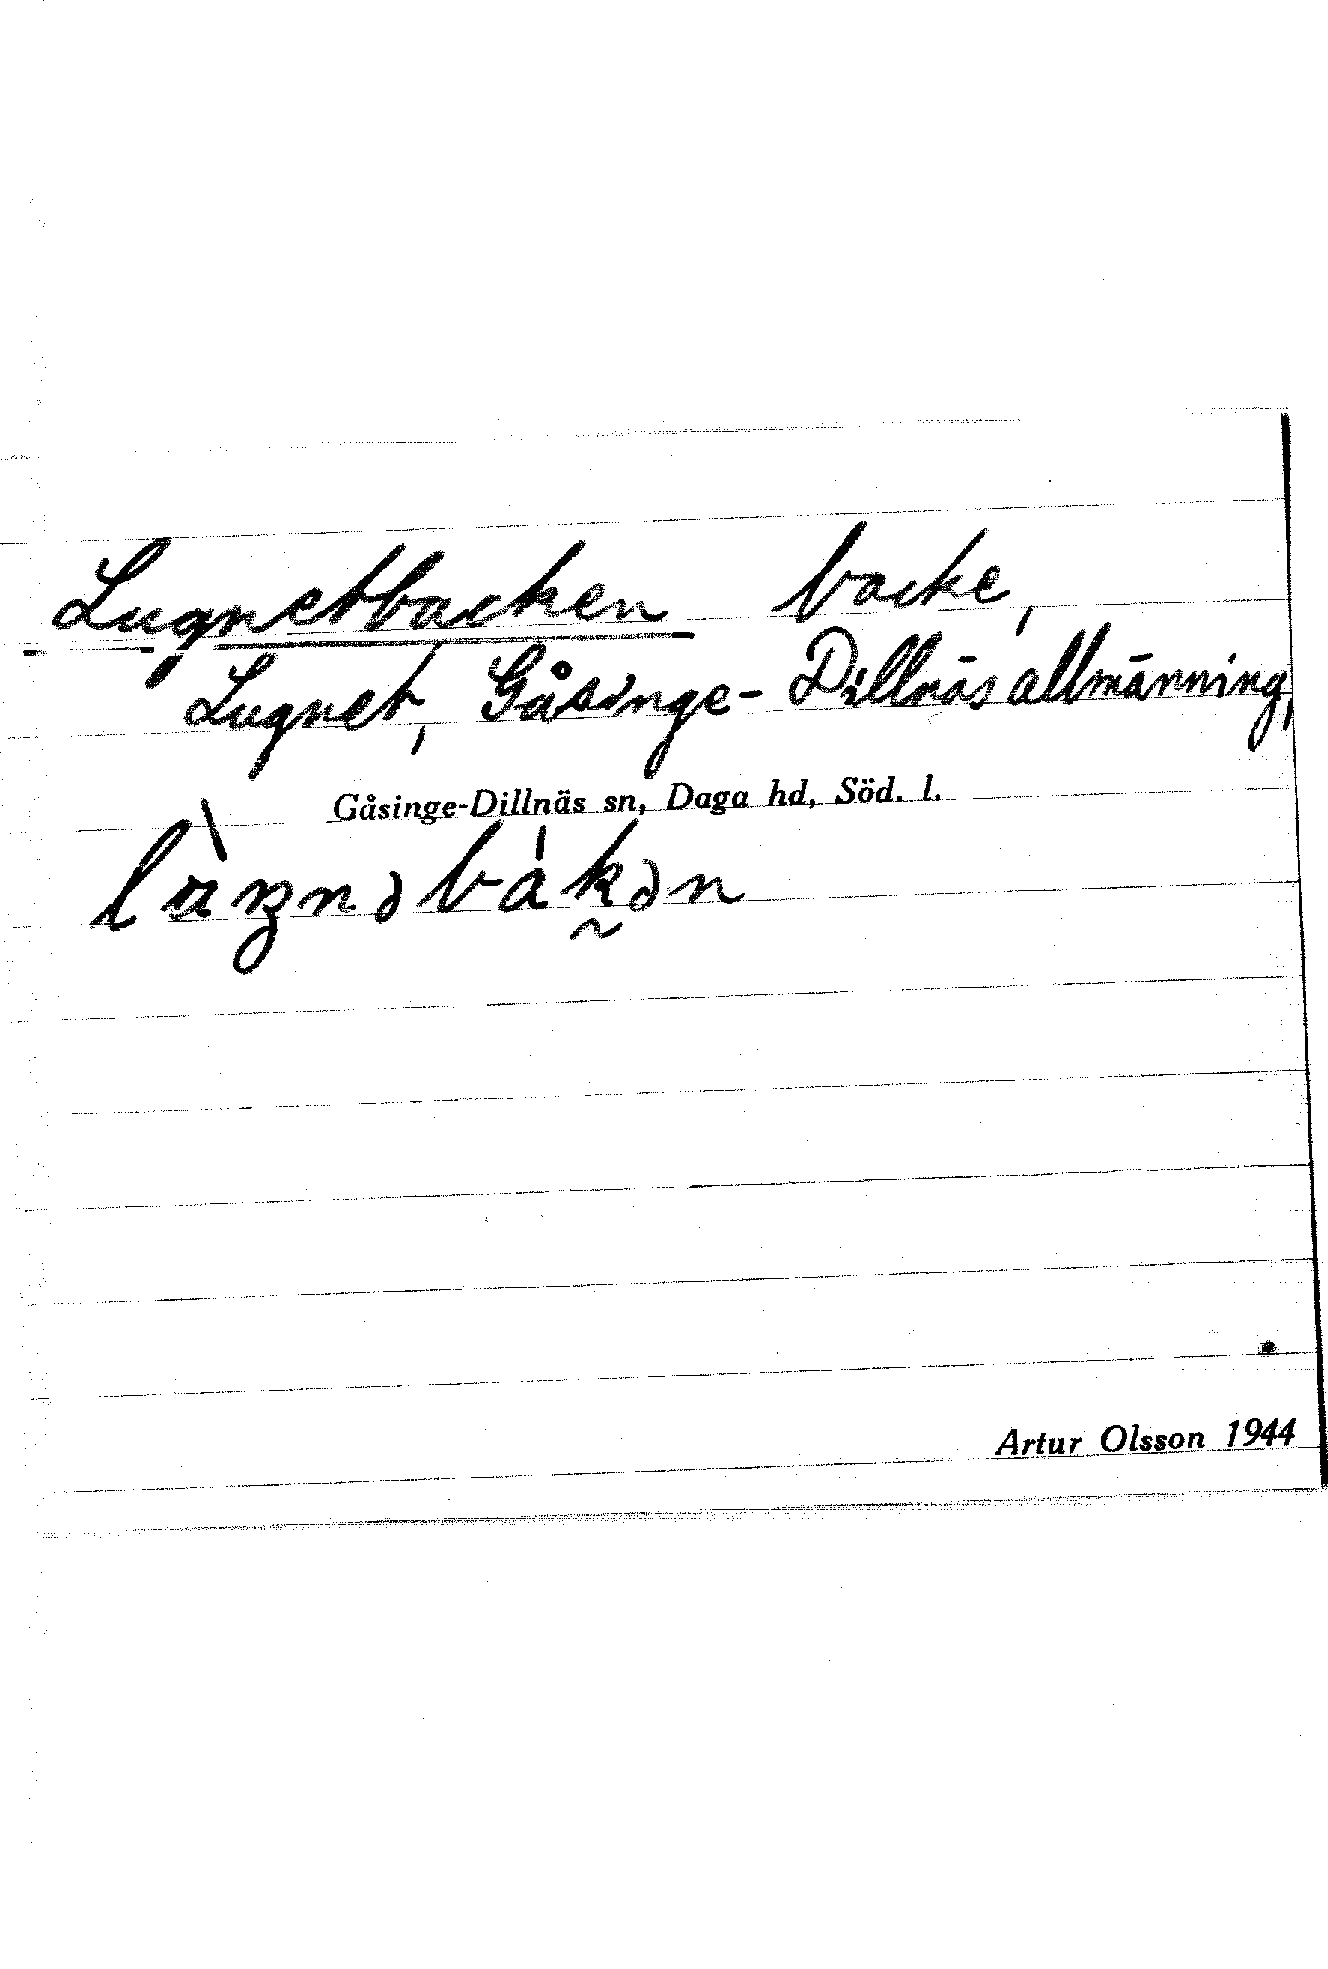 Lugnetbacken backe,
Lugnet, Gåsinge-Dillnäs allmänning,
Gåsinge-Dillnäs sn, Daga hd, Söd. l.
lùŋnəbákən
Artur Olsson 1944